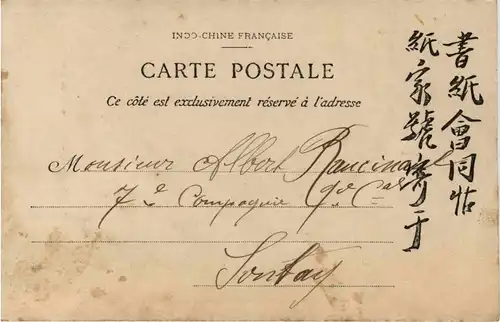 INDO-CHINE FRANÇAISE
CARTE POSTALE
Ce côté est exclusivement réservé à l'adresse
Monsieur Albert
7e Compagnie 9e
Sontay
書紙會同
紙家